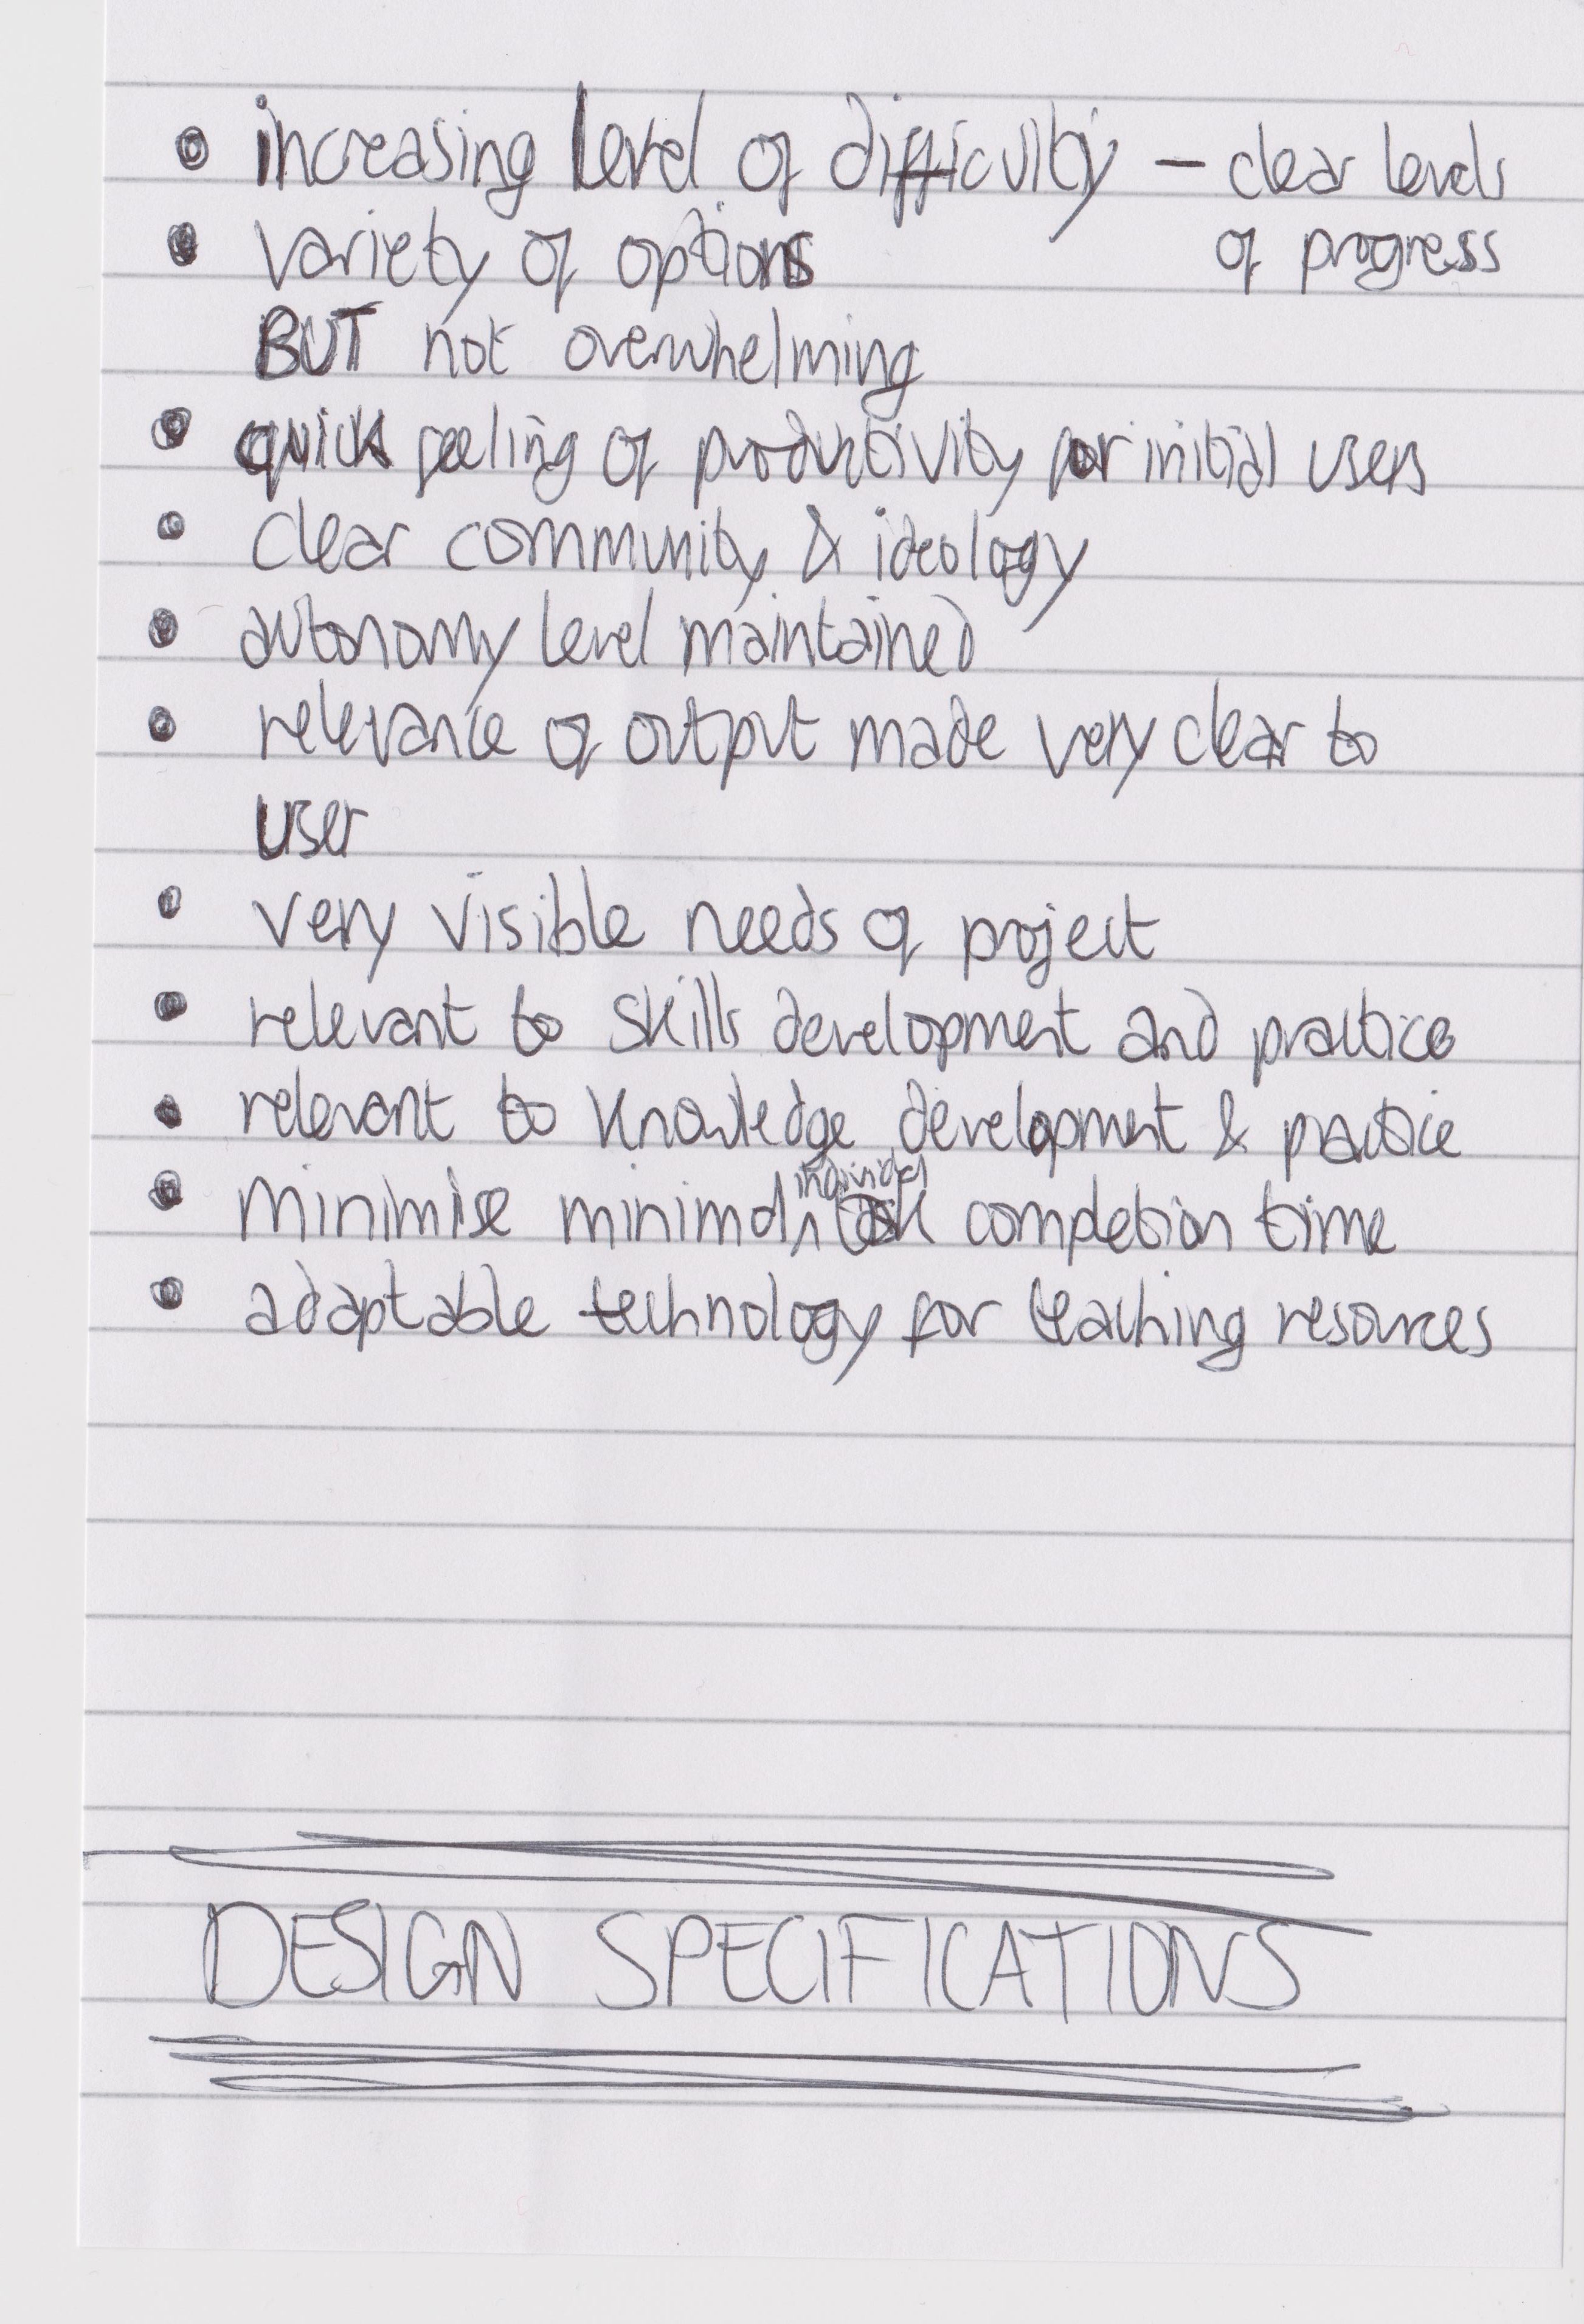 • increasing level of difficulty – clear levels
of progress
• variety of options
BUT not overwhelming
• quick feeling of productivity for initial users
• clear community & ideology
• autonomy level maintained
• relevance of output made very clear to
user
• very visible needs of project
• relevant to skills development and practice
• relevant to knowledge development & practice
• minimise minimal individual task completion time
• adaptable technology for teaching resources
DESIGN SPECIFICATIONS